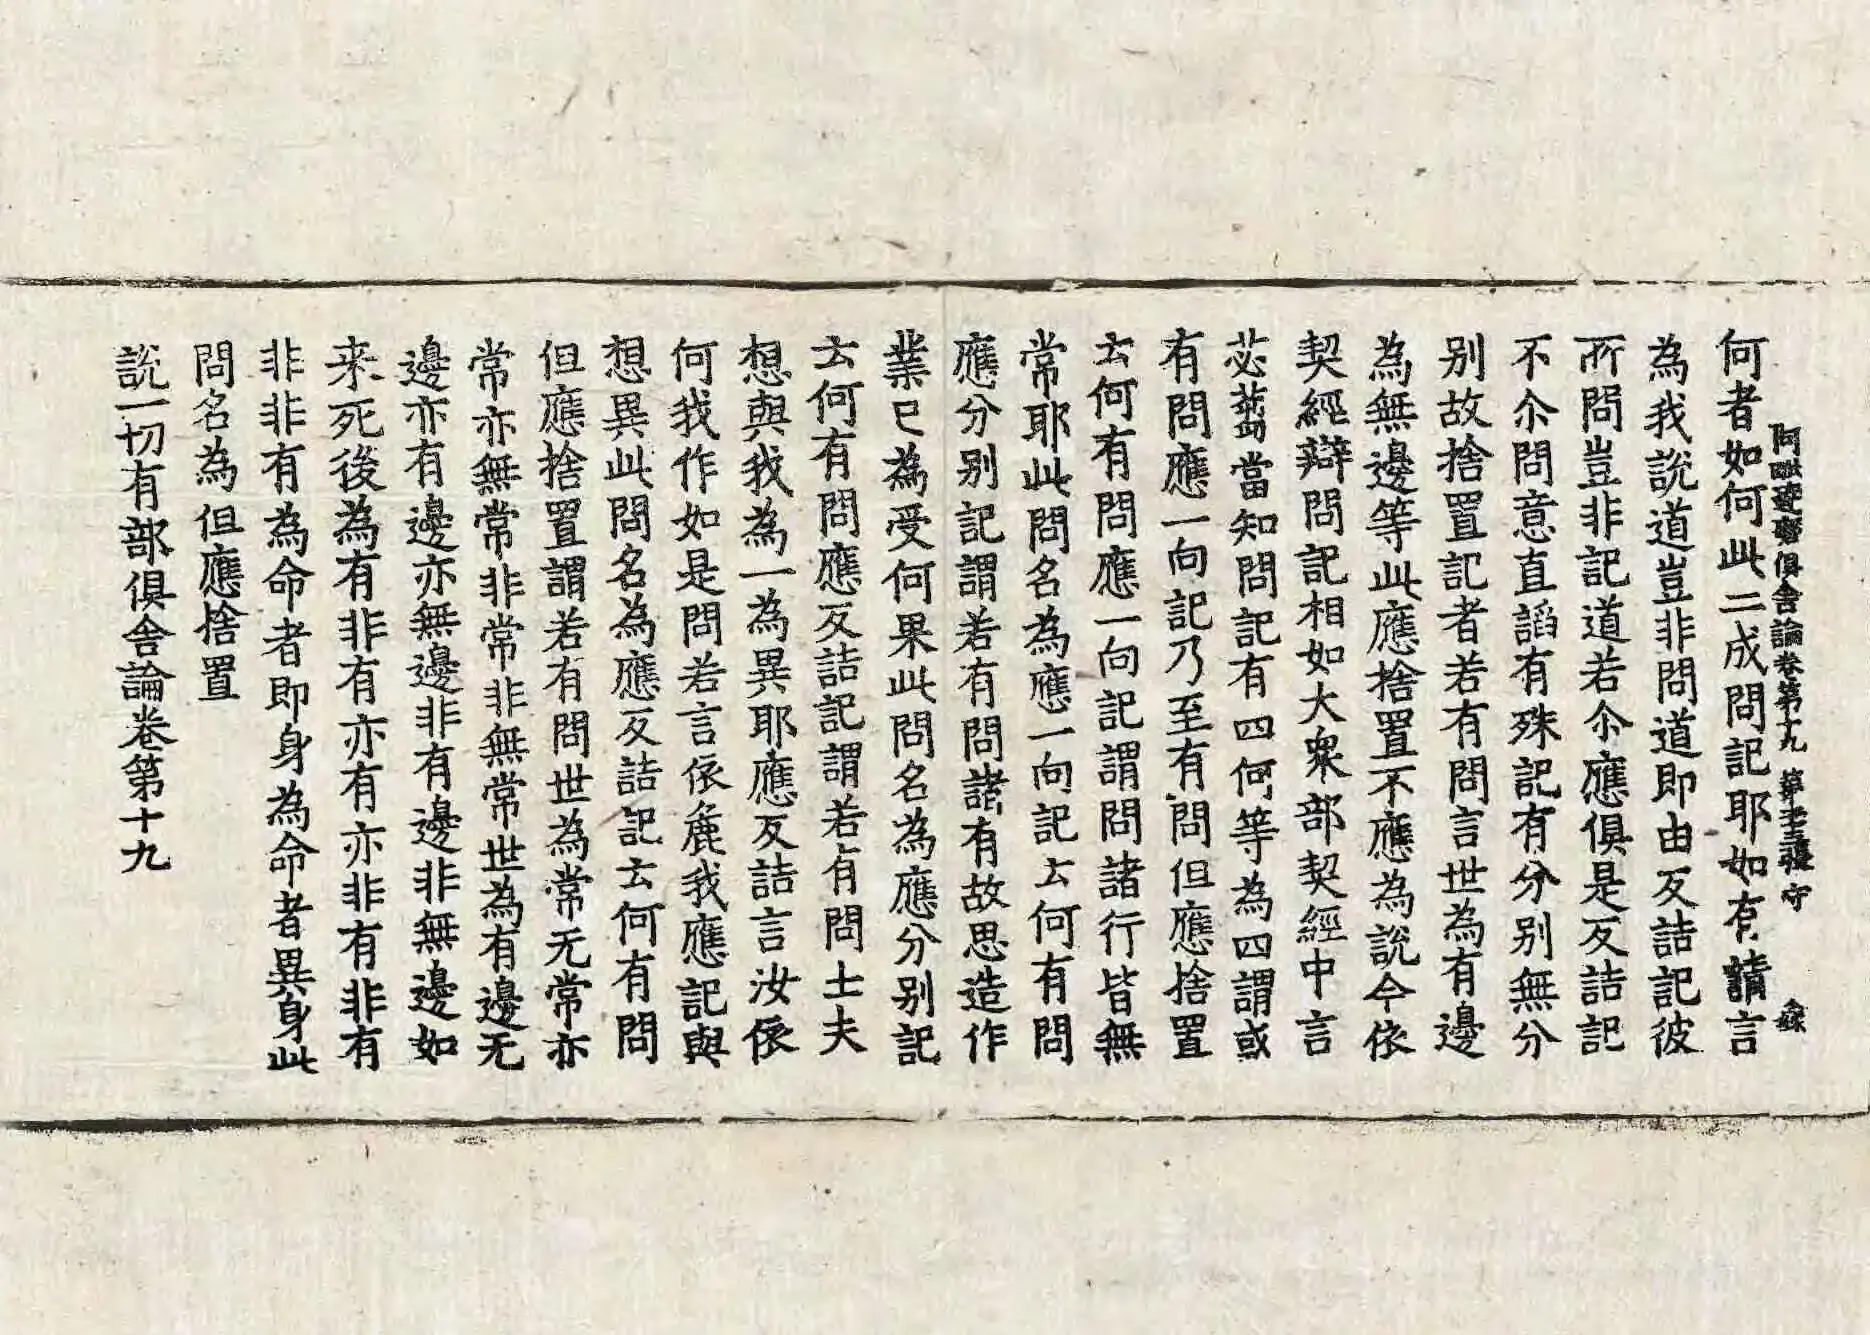 阿毗達磨俱舍論卷第十九 第 張 守
何者如何此二成問記耶如有請言
為我說道豈非問道即由反詰記彼
所問豈非記道若尒應俱是反詰記
不尒問意直謟有殊記有分別無分
別故捨置記者若有問言世為有邊
為無邊等此應捨置不應為說今依
契經辯問記相如大衆部契經中言
苾蒭當知問記有四何等為四謂或
有問應一向記乃至有問但應捨置
云何有問應一向記謂問諸行皆無
常耶此問名為應一向記云何有問
應分別記謂若有問諸有故思造作
業已為受何果此問名為應分別記
云何有問應反詰記謂若有問士夫
想與我為一為異耶應反詰言汝依
何我作如是問若言依麁我應記與
想異此問名為應反詰記云何有問
但應捨置謂若有問世為常无常亦
常亦無常非常非無常世為有邊无
邊亦有邊亦無邊非有邊非無邊如
来死後為有非有亦有亦非有非有
非非有為命者即身為命者異身此
問名為但應捨置
說一切有部俱舍論卷第十九